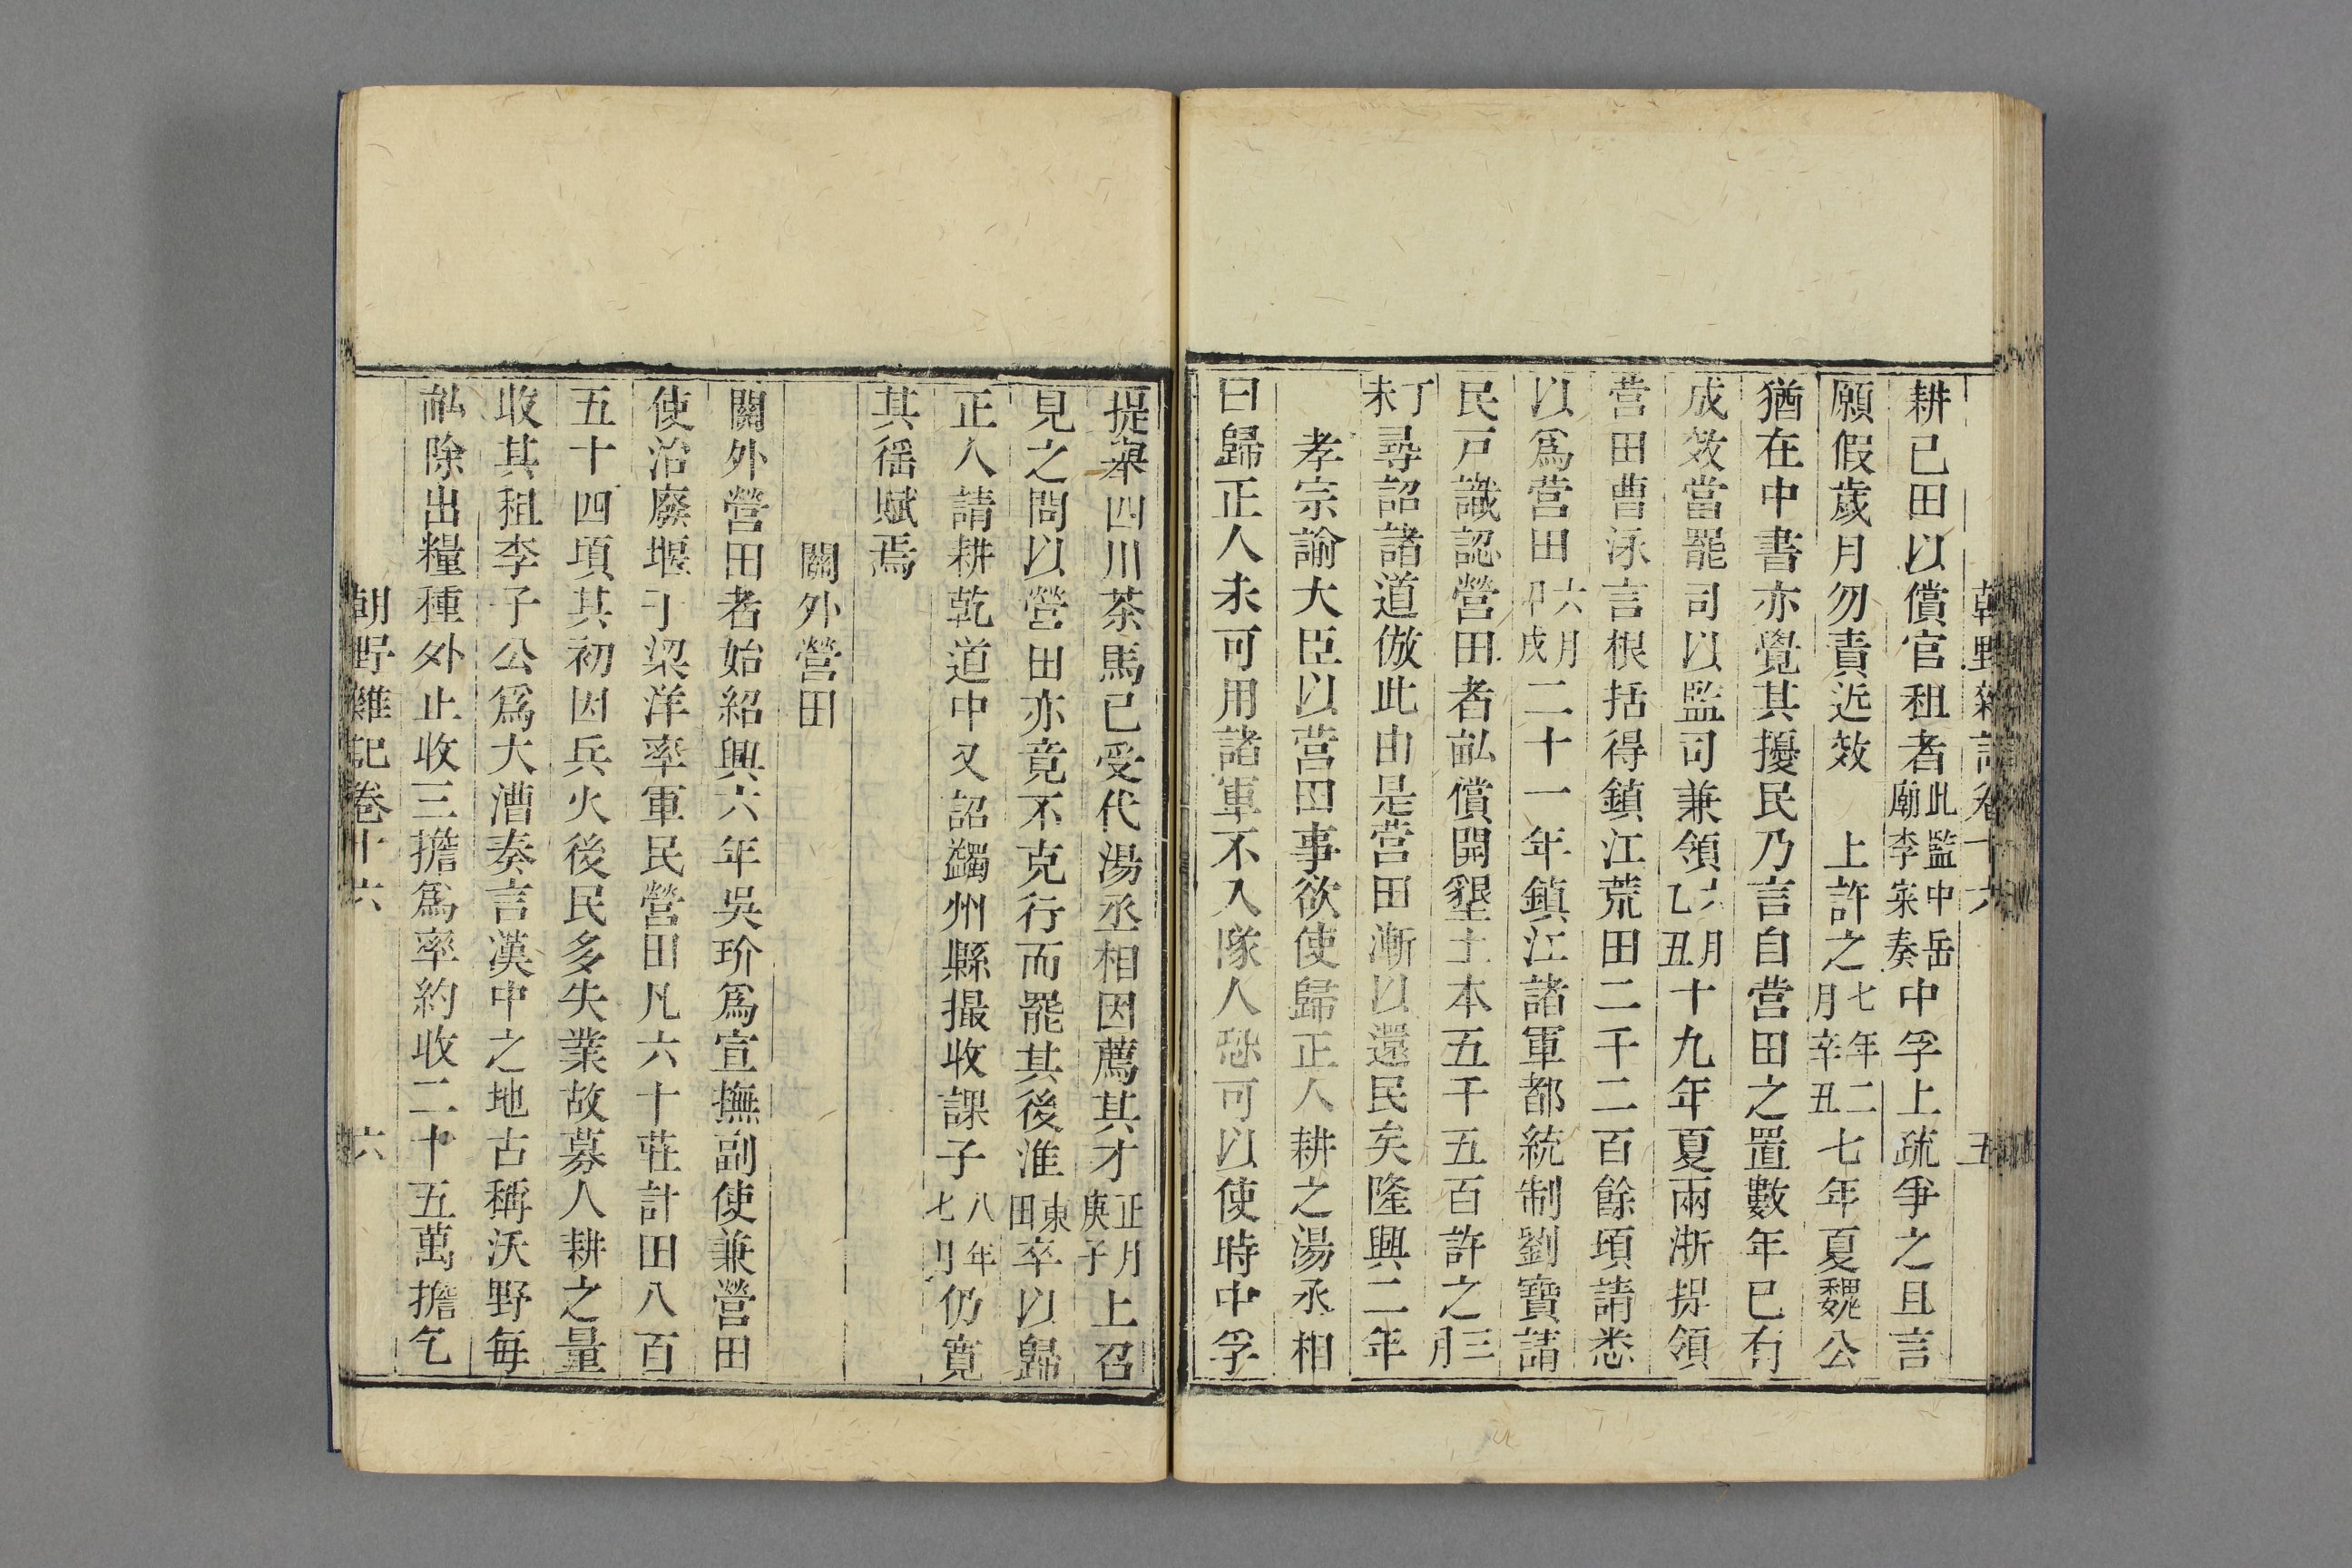 朝野雜記卷十六 五
耕已田以償官租者此監中岳廟李寀奏中孚上疏爭之且言
願假歲月勿責近效 上許之七年二月辛丑七年夏魏公
猶在中書亦覺其擾民乃言自營田之置數年已有
成效當罷司以監司兼領六月乙丑十九年夏兩淅提領
营田曹泳言根括得鎮江荒田二千二百餘頃請悉
以爲营田六月甲戌二十一年鎮江諸軍都統制劉寶請
民戸識認營田者畝償開墾土本五千五百許之三月
丁未尋詔諸道倣此由是营田漸以還民矣隆興二年
孝宗諭大臣以营田事欲使歸正人耕之湯丞相
曰歸正人未可用諸軍不入隊人恐可以使時中孚
提舉四川茶馬已受代湯丞相因薦其才正月庚子上召
見之問以營田亦竟不克行而罷其後淮東田卒以歸
正人請耕乾道中又詔蠲州縣撮收課子八年七月仍寛
其徭賦焉
關外營田
關外營田者始紹興六年吳玠爲宣撫副使兼營田
使治廢堰于梁洋率軍民營田凡六十莊計田八百
五十四頃其初因兵火後民多失業故募人耕之量
收其租李子公爲大漕奏言漢中之地古稱沃野每
畝除出糧種外止收三擔爲率約收二十五萬擔乞
朝野雜記卷十六 六